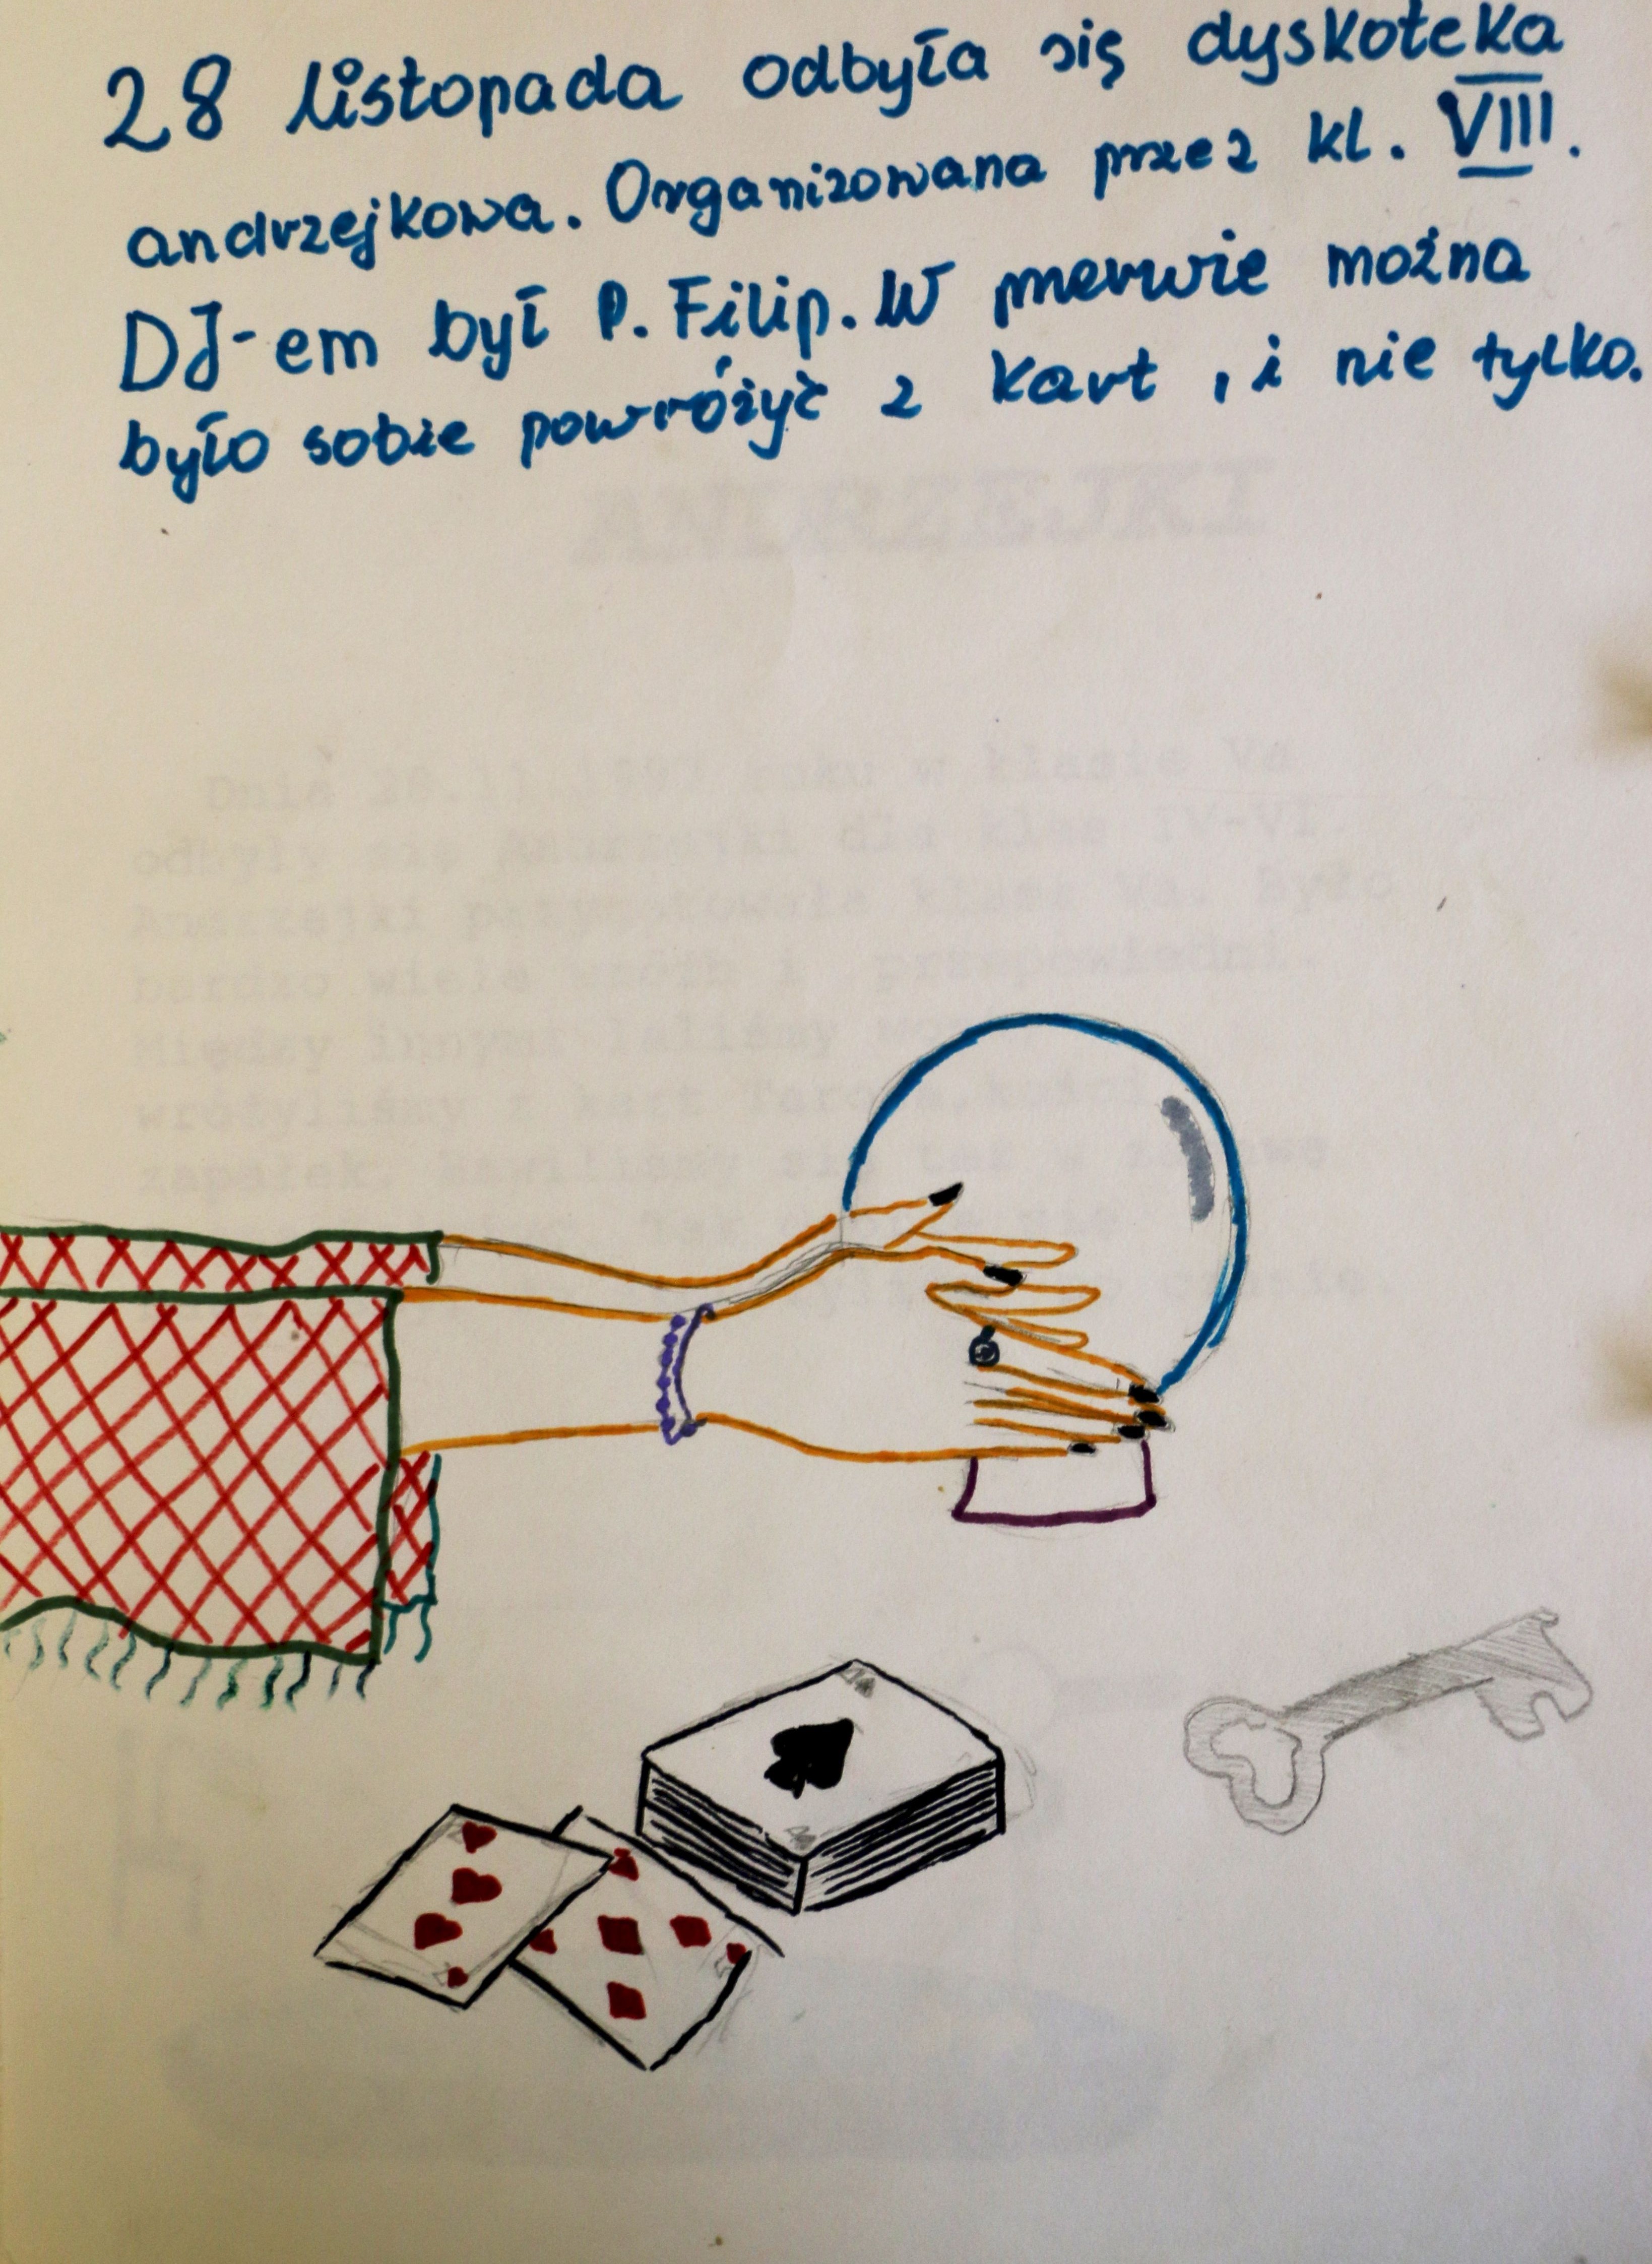 28 listopada odbyła się dyskoteka
andrzejkowa. Organizowana przez kl. VIII.
DJ-em był P. Filip. W przerwie można
było sobie powróżyć z kart, i nie tylko.
ANDRZEJKI
Dnia 28.11.1997 roku w klasie Va
odbyły się Andrzejki dla klas IV-VI.
Andrzejki przygotowała klasa Va. Było
bardzo wiele wróżb i przepowiedni.
Między innymi laliśmy
wróżyliśmy z kart Tarota, kości,
zapałek. Bawiliśmy się też w